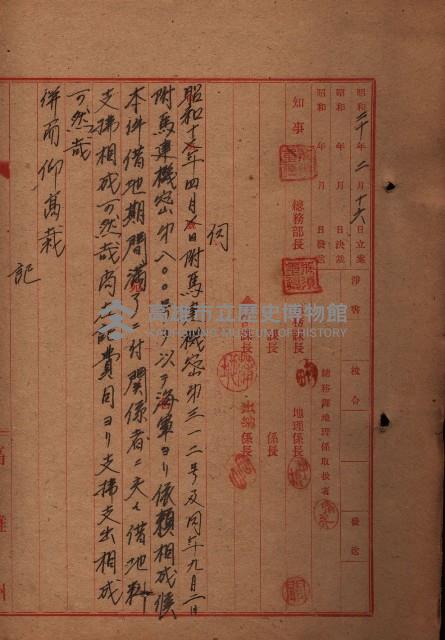 昭和二十年二月十六日立案
昭和 年 月 日決訟
昭和 年 月 日發訟
淨書
校合
發送
知事
總務部長
務課長
地理係長
總務課地理係取扱者
課長
係長
課長
出納係長
伺
昭和十八年四月 日附馬 機密第三一二号及同年九月二日
附馬建機密第八〇〇号ヲ以テ海軍ヨリ依頼相成候
本件借地期間満了ニ付関係者ニ夫々借地料
支拂相成可然哉尚 記費目ヨリ支拂支出相成
可然哉
併而仰高裁
記
高雄市立歷史博物館
KAOHSIUNG MUSEUM OF HISTORY
高雄州